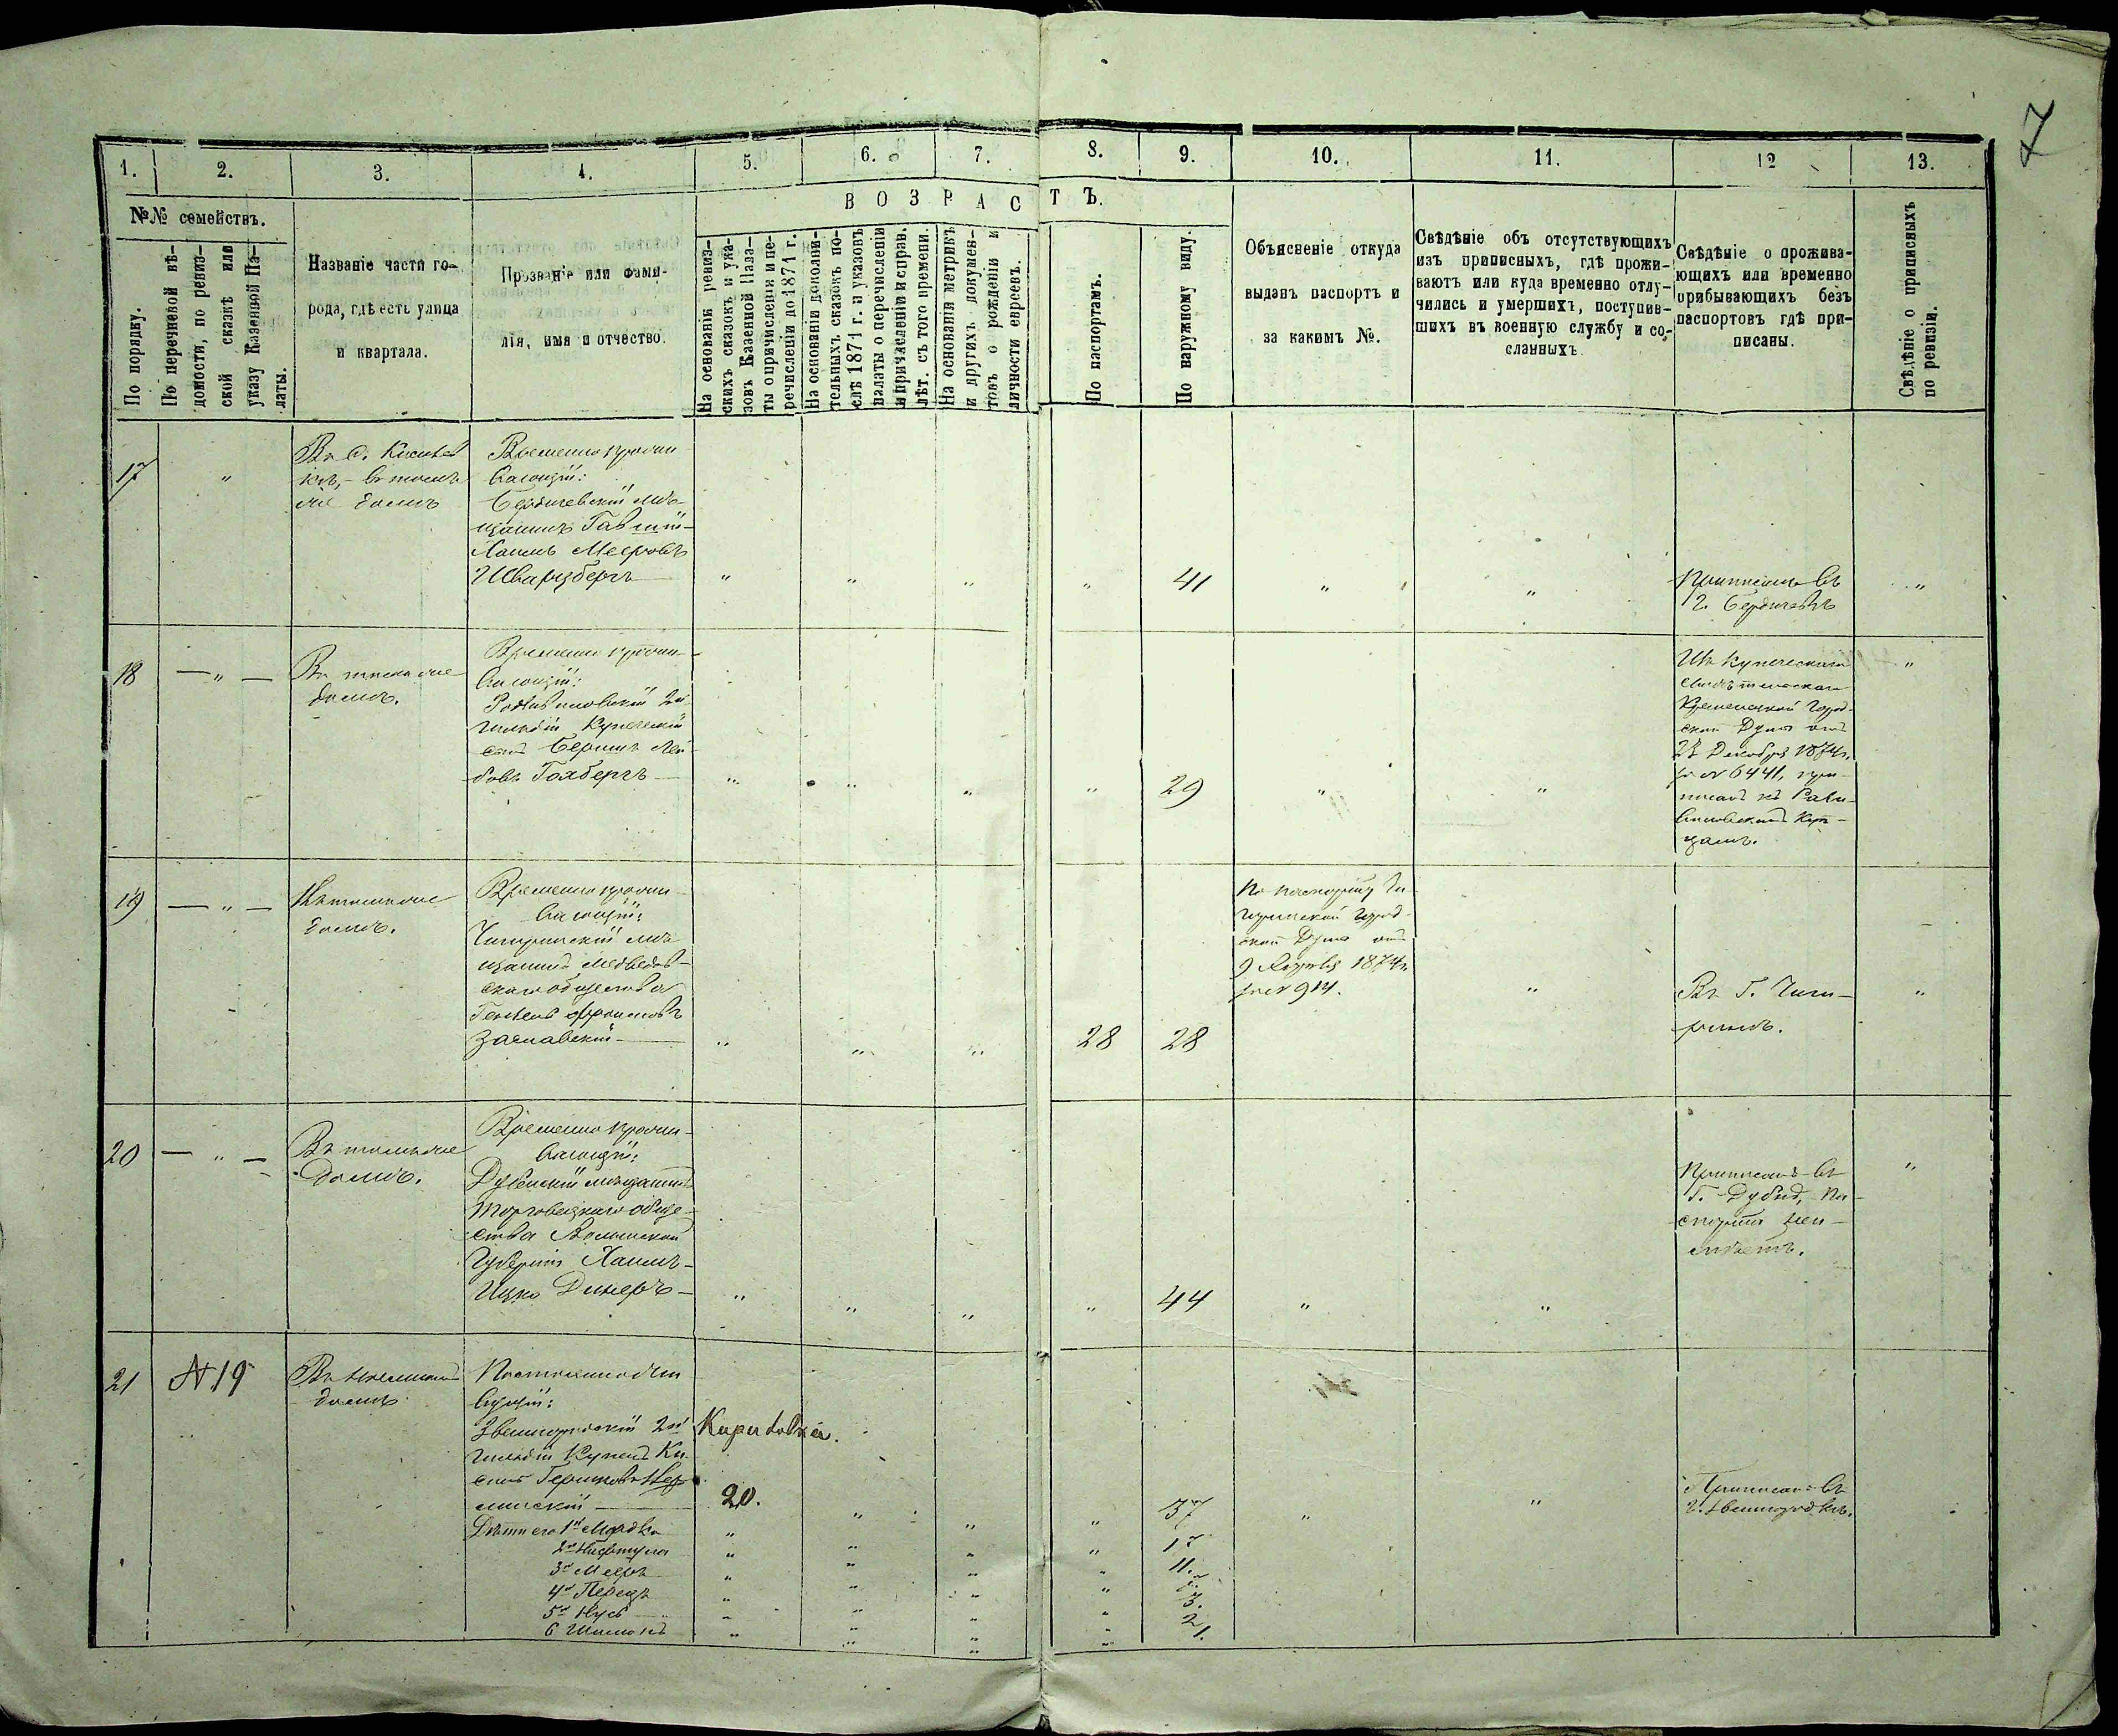 7
1. 2. 3. 4. 5. 6. 7. 8. 9. 10. 11. 12 13.
№№ семействъ.
По порядку.
По перечневой вѣ-
домости, по ревиз-
ской сказкѣ или
указу Казенной Па-
латы.
Названіе части го-
рода, гдѣ есть улица
и квартала.
Прозваніе или фами-
лія, имя и отчество.
ВОЗРАСТЪ.
На основаніи ревиз-
скихъ сказокъ и ука-
зовъ Казенной Пала-
ты о причисленіи и пе-
речисленіи до 1871 г.
На основаніи дополни-
тельныхъ сказокъ по-
слѣ 1871 г. и указовъ
палаты о перечисленіи
и причисленіи и справ.
лѣт. съ того времени.
На основаніи метрикъ
и другихъ докумен-
товъ о рожденіи и
личности евреевъ.
По паспортамъ.
По наружному виду.
Объясненіе откуда
выданъ паспортъ и
за какимъ №.
Свѣдѣніе объ отсутствующихъ
изъ приписныхъ, гдѣ прожи-
ваютъ или куда временно отлу-
чились и умершихъ, поступив-
шихъ въ военную службу и со-
сланныхъ.
Свѣдѣніе о прожива-
ющихъ или временно
прибывающихъ безъ
паспортовъ гдѣ при-
писаны.
Свѣдѣніе о приписныхъ
по ревизіи.
17
"
въ томъ
же домѣ
Временно прожи-
вающій:
Бердичевскій мѣ-
щанинъ
Хаимъ Мееровъ
Шварцбергъ
" " " " 41 " "
Приписанъ въ
г. Бердичевѣ
"
18
— " —
Въ томъ же
домѣ.
Временно прожи-
вающій:
Радивиловскій 2й
гильдіи Купеческій
сынъ Бершъ Лей-
бовъ Гохбергъ —
" " " " 29 " "
купеческаго
Кременецкой Город-
ской Думы отъ
Декабря 1874 г.
за № 6441, при-
писанъ къ Ради-
виловскимъ Куп-
цамъ.
"
19
— " —
Въ томъ же
домѣ.
Временно прожи-
вающій:
Чигиринскій мѣ-
щанинъ Медведов-
скаго общества
Заславскій —
" " " 28 28
По паспорту Чи-
гиринской Город-
ской Думы отъ
9 1874 г.
за № 914.
"
Въ г. Чиги-
ринѣ.
"
20
— " —
Въ томъ же
домѣ.
Временно прожи-
вающій:
Дубенскій мѣщанинъ
Торговецкаго обще-
ства Волынской
Губерніи Хаимъ-
Ицко Динеръ —
" " " " 44 " "
Приписанъ въ
г. Дубнѣ, Па-
спорта неи-
мѣетъ.
"
21
№ 19
Въ
домѣ
Постоянно жи-
вущій:
Звенигородскій 2й
гильдіи Купецъ Ки-
силь Гершковъ
20.
" " " 37 " "
Приписанъ въ
г. Звенигородкѣ.
Дѣти его 1й Мордко
2й Нафтула
3й Мееръ
4й Перецъ
5й Нусь
6 Шимонъ
11.
3.
2
1.